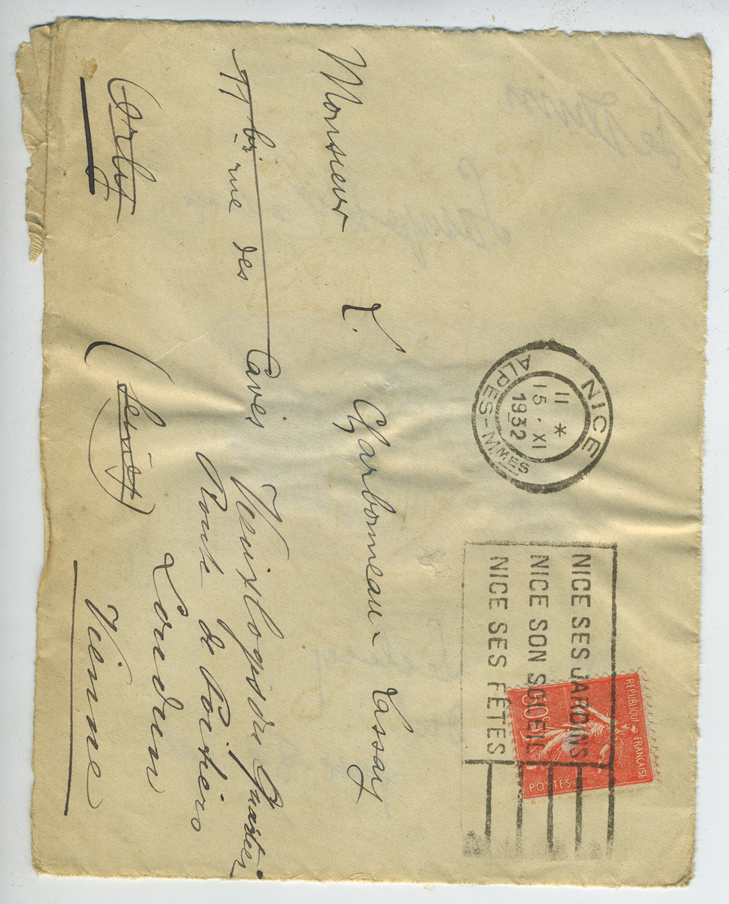 NICE
11 *
15 . XI
1932
ALPES-MMES
NICE SES JARDINS
NICE SON SOLEIL
NICE SES FÊTES
REPUBLIQUE FRANÇAISE
50c
POSTES
Monsieur L. Charbonneau-Lassay
77 bis rue des Caves
Vieux Logis du
Route de Poitiers
Corby
Loudun
Vienne